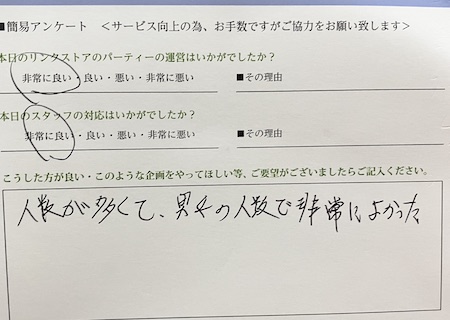 ■簡易アンケート ＜サービス向上の為、お手数ですがご協力をお願い致します＞
本日のリンタストアのパーティーの運営はいかがでしたか？
非常に良い・良い・悪い・非常に悪い ■その理由
本日のスタッフの対応はいかがでしたか？
非常に良い・良い・悪い・非常に悪い ■その理由
こうした方が良い・このような企画をやってほしい等、ご要望がございましたらご記入ください。
人数が多くて、男女の人数で非常によかった